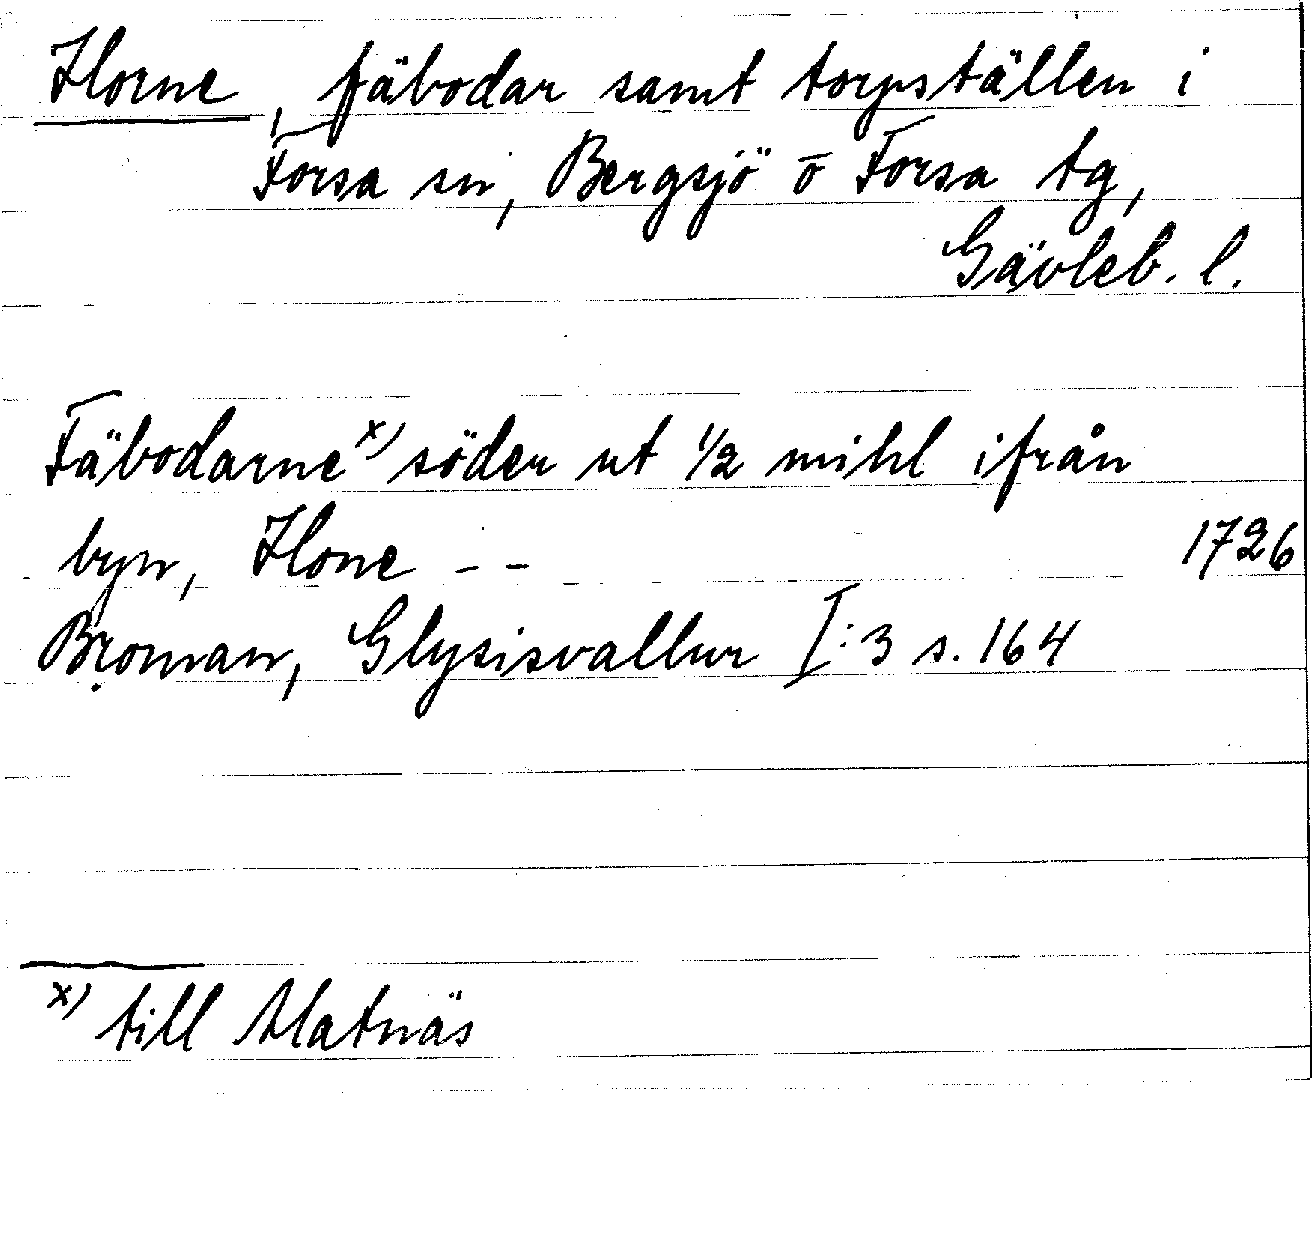 Horne, fäbodar samt torpställen i
Forsa sn, Bergsjö o Forsa tg,
Gävleb. l.
Fäbodarne x) söder ut 1/2 mihl ifrån
byn, Hone - - 1726
Broman, Glysisvallur I:3 s. 164
x) till Hatnäs